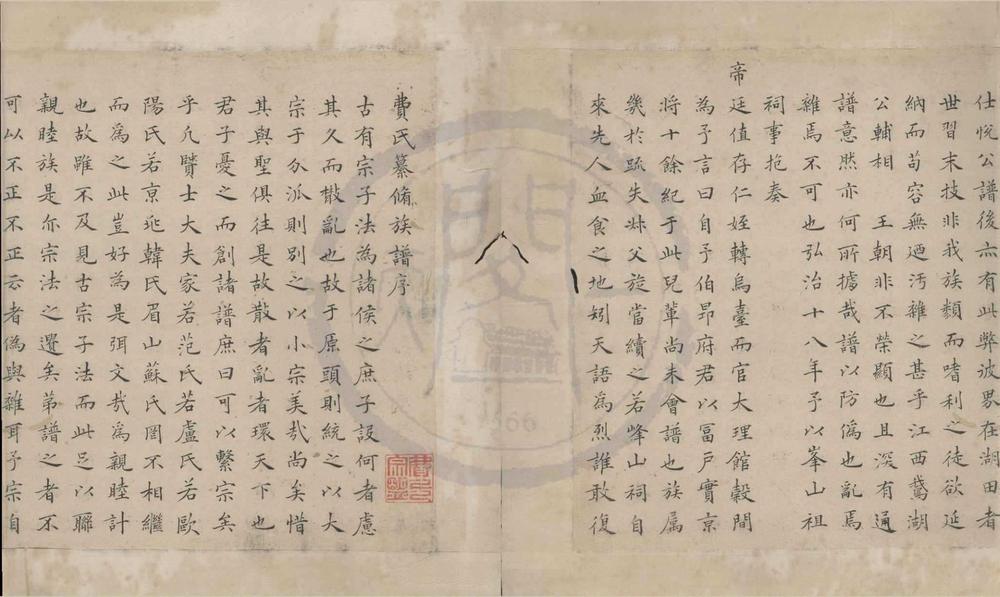 仕悅公譜後亦有此弊彼界在湖田者
世習末技非我族類而嗜利之徒欲延
納而苟容無廼汚雜之甚乎江西鵞湖
公輔相　王朝非不榮顯也且深有通
譜意然亦何所據哉譜以防偽也亂焉
雜焉不可也弘治十八年予以峯山祖
祠事抱奏
帝廷值存仁姪轉烏臺而官大理館穀間
為予言曰自予伯昂府君以冨戶實京
將十餘紀于此兒輩尚未會譜也族属
幾於踈失妳父旋當續之若峰山祠自
來先人血食之地矧天語為烈誰敢復
費氏纂脩族譜序
古有宗子法為諸侯之庶子設何者慮
其久而散亂也故于原頭則統之以大
宗于分派則别之以小宗美哉尚矣惜
其與聖俱往是故散者亂者環天下也
君子憂之而創諸譜庶曰可以繫宗矣
乎凢賢士大夫家若范氏若盧氏若歐
陽氏若京兆韓氏眉山蘇氏罔不相繼
而為之此豈好為是弭文哉為親睦計
也故雖不及見古宗子法而此足以聯
親睦族是亦宗法之遺矣苐譜之者不
可以不正不正云者偽與雜耳予宗自